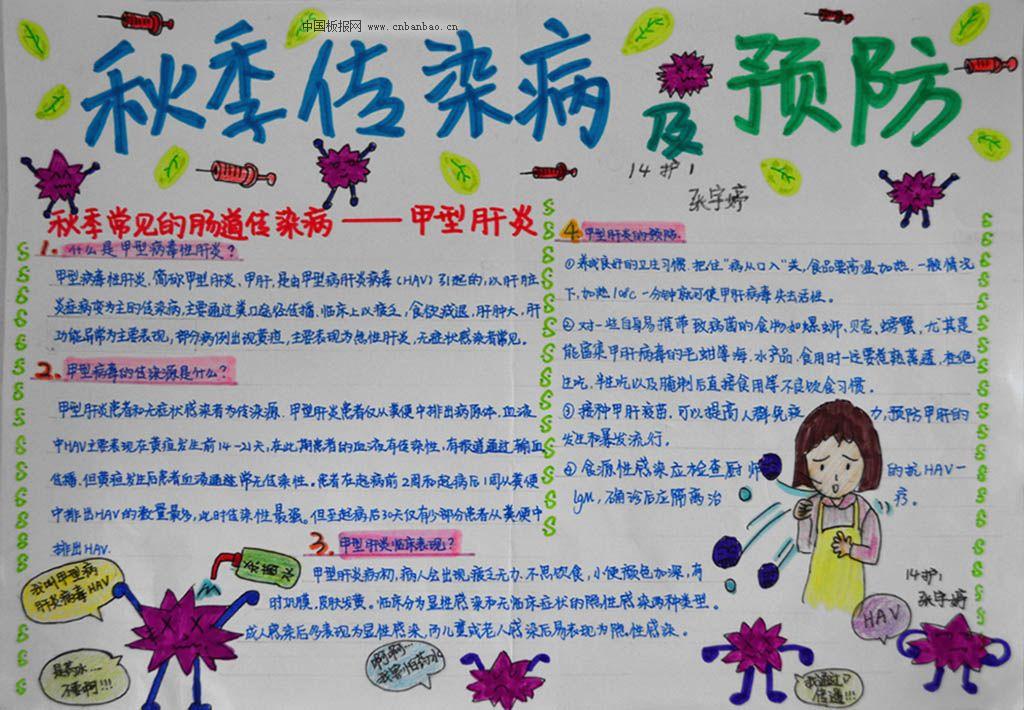 中国板报网 www.cnbanbao.cn
秋季传染病及预防
14护1
张宇婷
秋季常见的肠道传染病——甲型肝炎
1. 什么是甲型病毒性肝炎?
甲型病毒性肝炎,简称甲型肝炎、甲肝,是由甲型病肝炎病毒(HAV)引起的,以肝脏
炎症病变为主的传染病,主要通过粪口途径传播,临床上以疲乏,食欲减退,肝肿大,肝
功能异常为主要表现,部分病例出现黄疸,主要表现为急性肝炎,无症状感染者常见。
2. 甲型病毒的传染源是什么?
甲型肝炎患者和无症状感染者为传染源.甲型肝炎患者仅从粪便中排出病原体,血液
中HAV主要表现在黄疸发生前14-21天,在此期患者的血液有传染性,有报道通过输血
传播,但黄疸发生后患者血液通常无传染性。患者在起病前2周和起病后1周从粪便
中排出HAV的数量最多,此时传染性最强。但至起病后30天仅有少部分患者从粪便中
排出HAV.
3. 甲型肝炎临床表现?
甲型肝炎病初,病人会出现疲乏无力、不思饮食,小便颜色加深,有
时巩膜、皮肤发黄。临床分为显性感染和无临床症状的隐性感染两种类型。
成人感染后多表现为显性感染,而儿童或老人感染后易表现为隐性感染。
4 甲型肝炎的预防.
①养成良好的卫生习惯,把住“病从口入”关,食品要高温加热,一般情况
下,加热100℃一分钟就可使甲肝病毒失去活性。
②对一些自身易携带致病菌的食物如螺蛳、贝壳、螃蟹,尤其是
能富集甲肝病毒的毛蚶等海、水产品,食用时一定要煮熟蒸透,杜绝
生吃,半生吃以及腌制后直接食用等不良饮食习惯。
③接种甲肝疫苗,可以提高人群免疫力,预防甲肝的
发生和暴发流行。
④食源性感染应检查厨师的抗HAV-
IgM,确诊后应隔离治疗。
我叫甲型病
肝炎病毒HAV
是药水...
不要啊!!!
啊啊...
我害怕药水
我通过口
传遍!!!
HAV
14护1
张宇婷